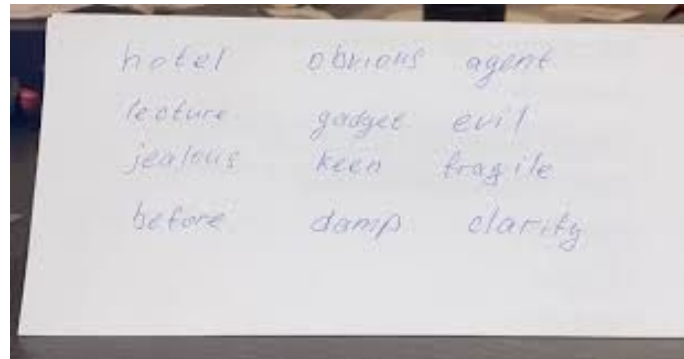 hotel obvious agent
lecture gadget evil
jealous keen fragile
before damp clarity